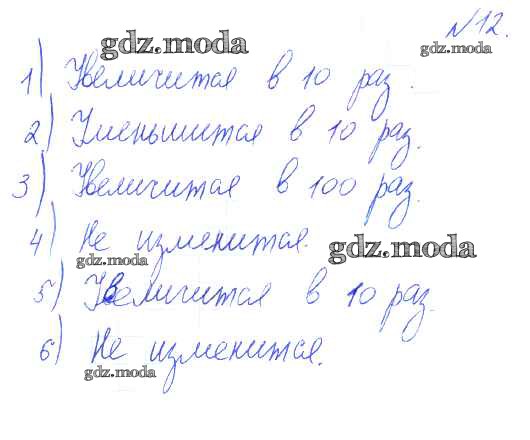 №12.
gdz.moda gdz.moda
1) Увеличится в 10 раз.
2) Уменьшится в 10 раз.
3) Увеличится в 100 раз.
4) Не изменится.
gdz.moda gdz.moda
5) Увеличится в 10 раз.
6) Не изменится.
gdz.moda